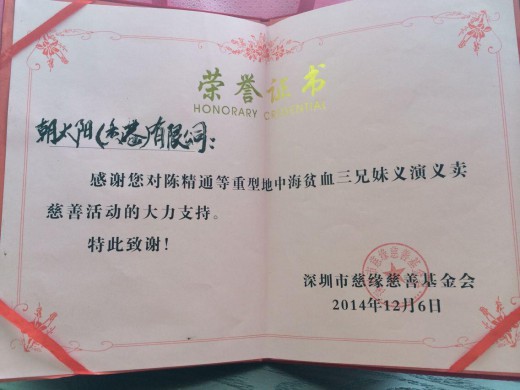 荣誉证书
HONORARY CREDENTIAL
朝太阳（香港）有限公司：
感谢您对陈精通等重型地中海贫血三兄妹义演义卖
慈善活动的大力支持。
特此致谢！
深圳市慈缘慈善基金会
2014年12月6日